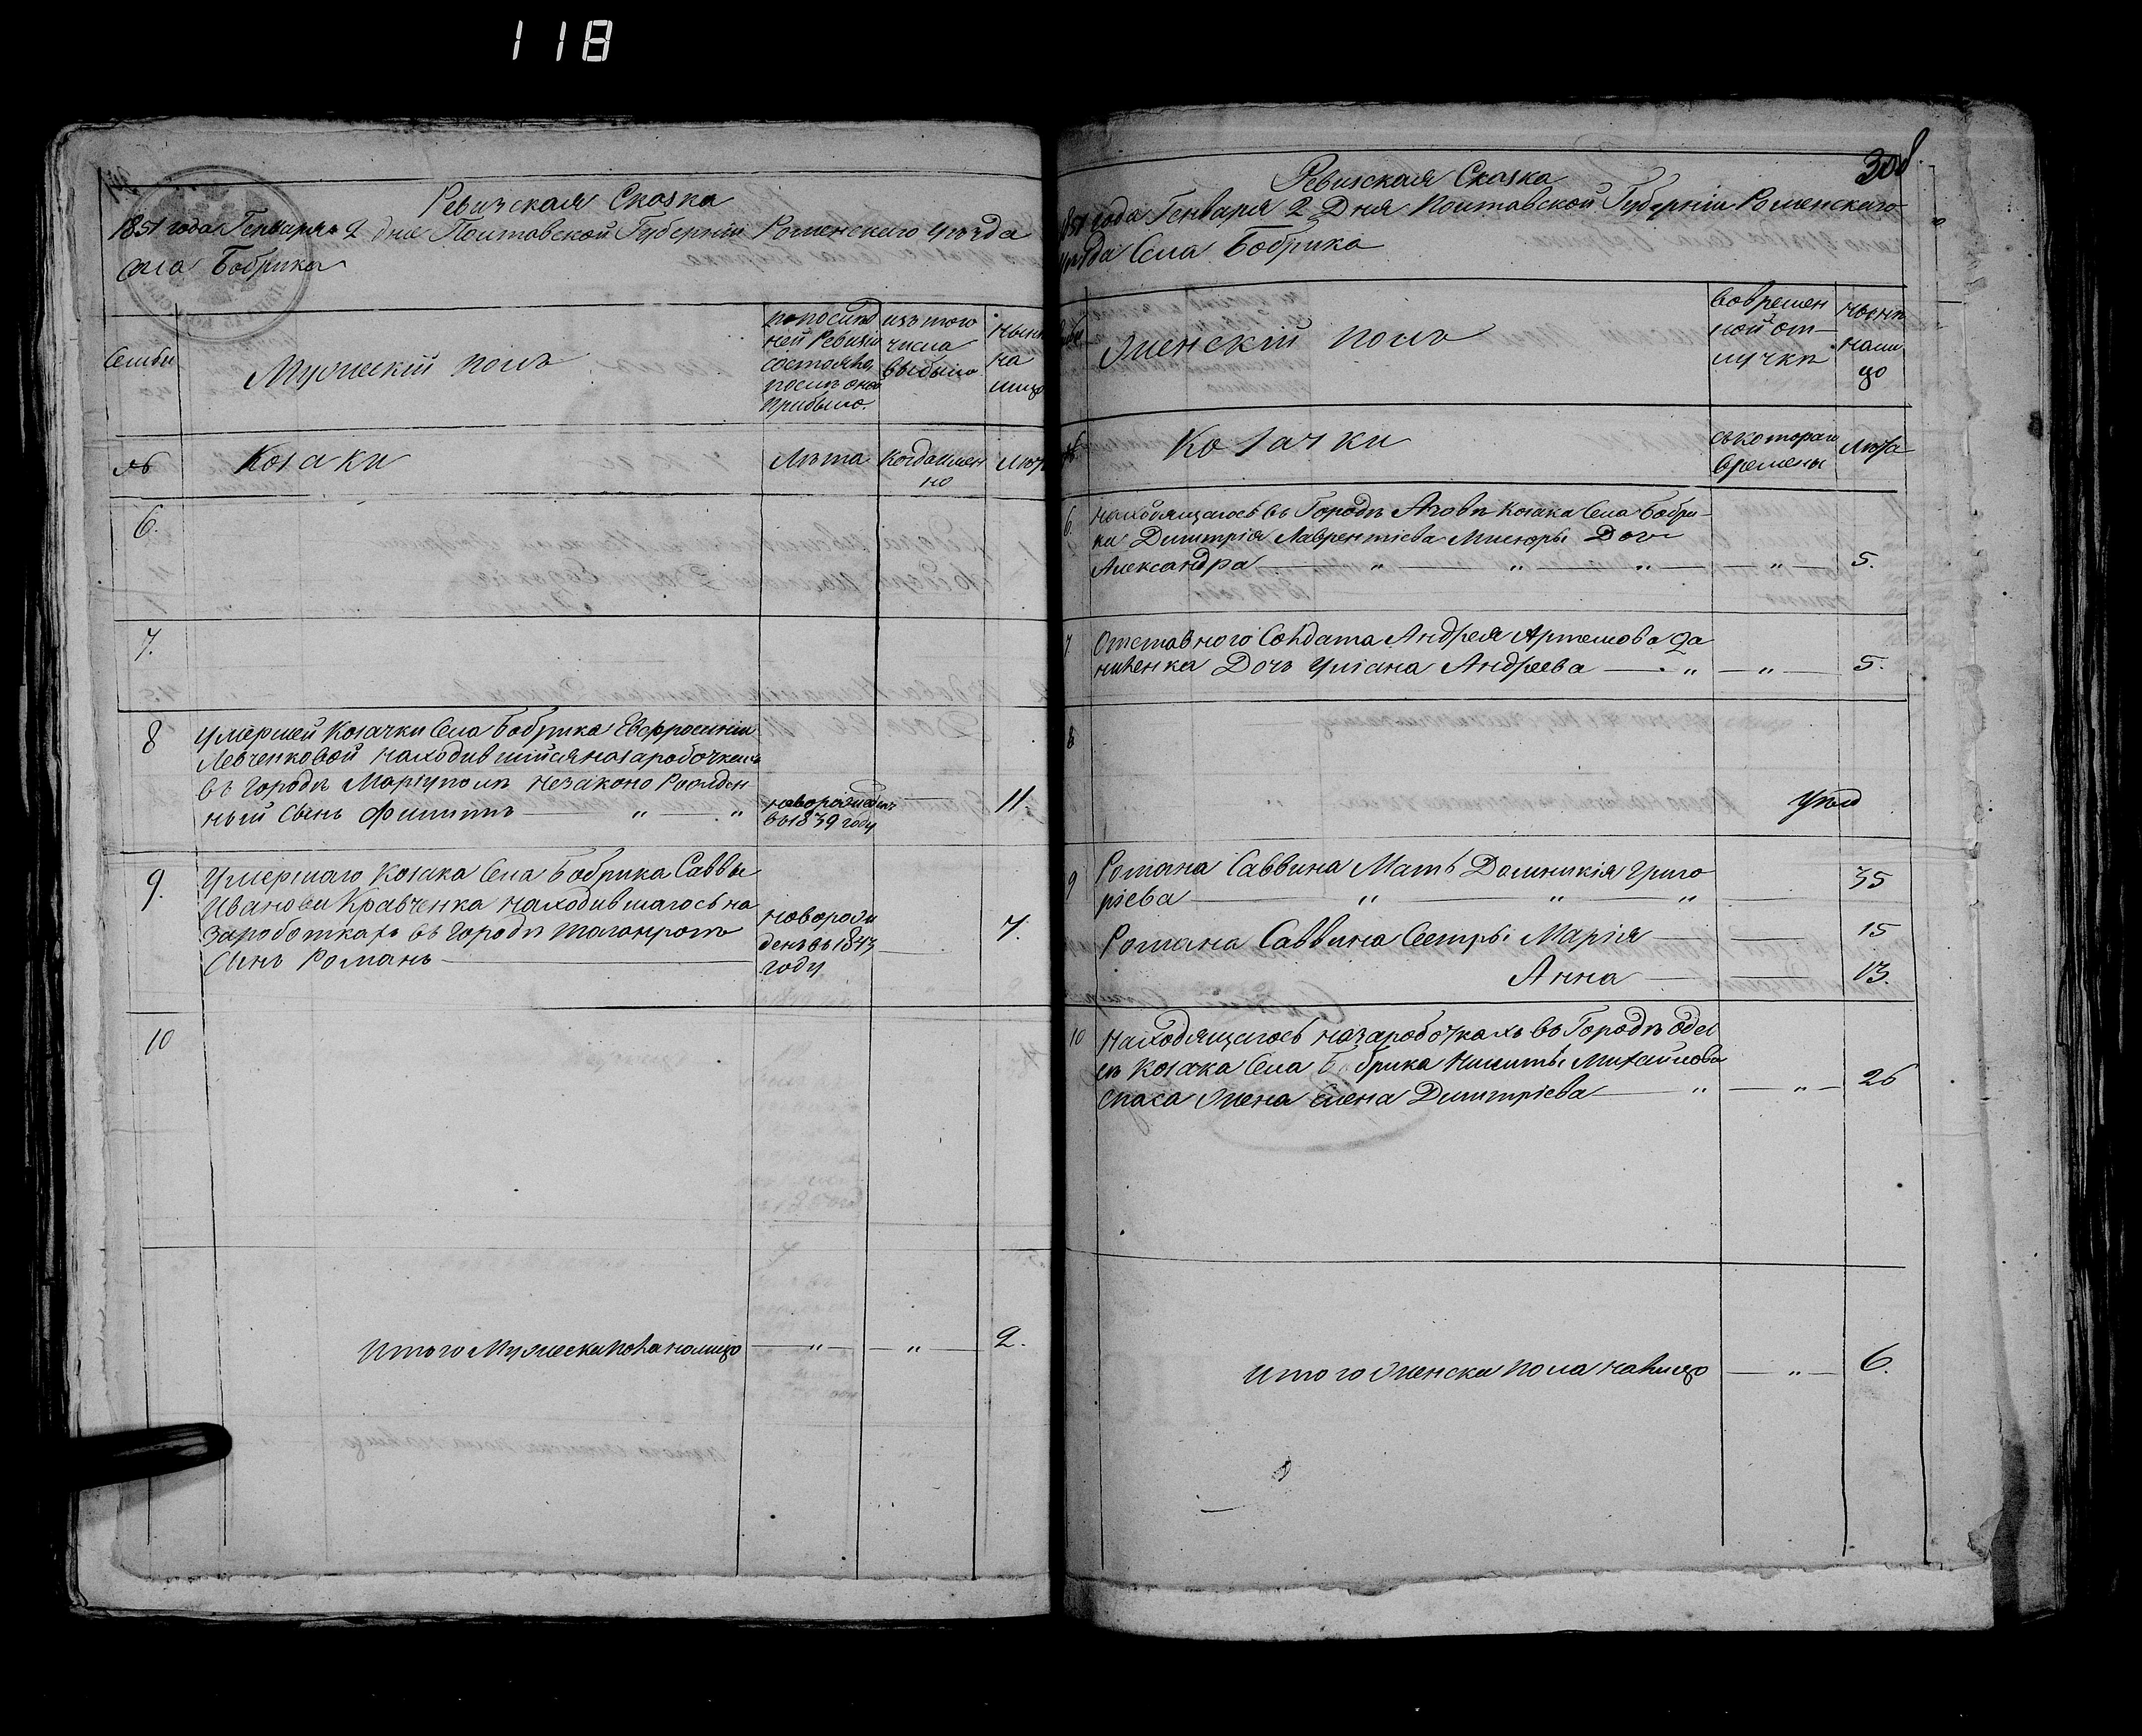 118
Ревизская Сказка
1851 года Генваря 2 дня Полтавской Губерніи Роменского уѣзда
села Бобрика
Семьи
Мужескій полъ
по послѣд
ней Ревизіи
состояло и
послѣ оной
прибыло.
изъ того
числа
выбыло
нынѣ
на
лицо
№
Козаки
Лѣта
когда имен
но
Лѣта
6.
7.
8
умершей Козачки села Бобрика Евфросиніи
Левченковой находившійся на заработкахъ
въ городѣ Маріуполѣ незаконо Рожден
ный Сынъ Филиппъ — " — "
новорожденъ
въ 1839 году
11.
9.
Умершаго Козака Села Бобрика Саввы
Иванова Кравченка находившагось на
Заработкахъ въ городѣ Таганрогѣ
Сынъ Романъ
новорож
денъ въ 1843
году
7.
10
Итого Мужеска пола налицо — " — " — 2.
308.
Ревизская Сказка
1851 года Генваря 2 Дня Полтавской Губерніи Роменского
уѣзда Села Бобрика
Женскій полъ
во времен
ной от-
лучкѣ
нынѣ
нали
цо
№
Козачки
съ котораго
времены
Лѣта
6.
находящагось въ Городѣ Азовѣ козака Села Бобри-
ка Димитрія Лаврентіева Мисюры Доч
Александра — " — " — " — " — 5.
7
Отставного Солдата Андрея Артемова Да
ниленка Дочь Уліана Андреева — " — " — 5.
8
9
Романа Саввина Мать Доминикія Григо
ріева — " — " — " — 35
Романа Саввина Сестры Марія — 15
Анна — 13.
10
Находящагось на заработкахъ въ Городѣ Одес
сѣ козака Села Бобрика Никиты Михайлова
Спаса Жена Елена Димитріева — " — " — 26
Итого Женска пола налицо — " — 6.